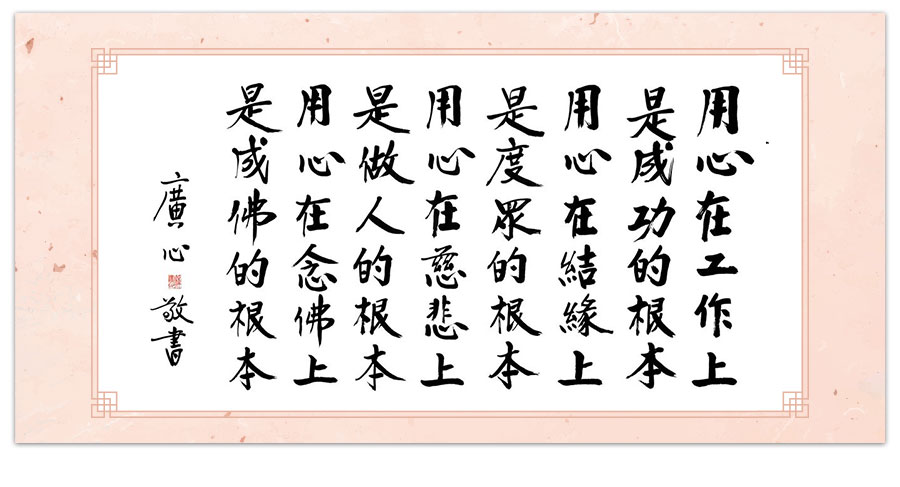 用心在工作上
是成功的根本
用心在結緣上
是度眾的根本
用心在慈悲上
是做人的根本
用心在念佛上
是成佛的根本
廣心 敬書